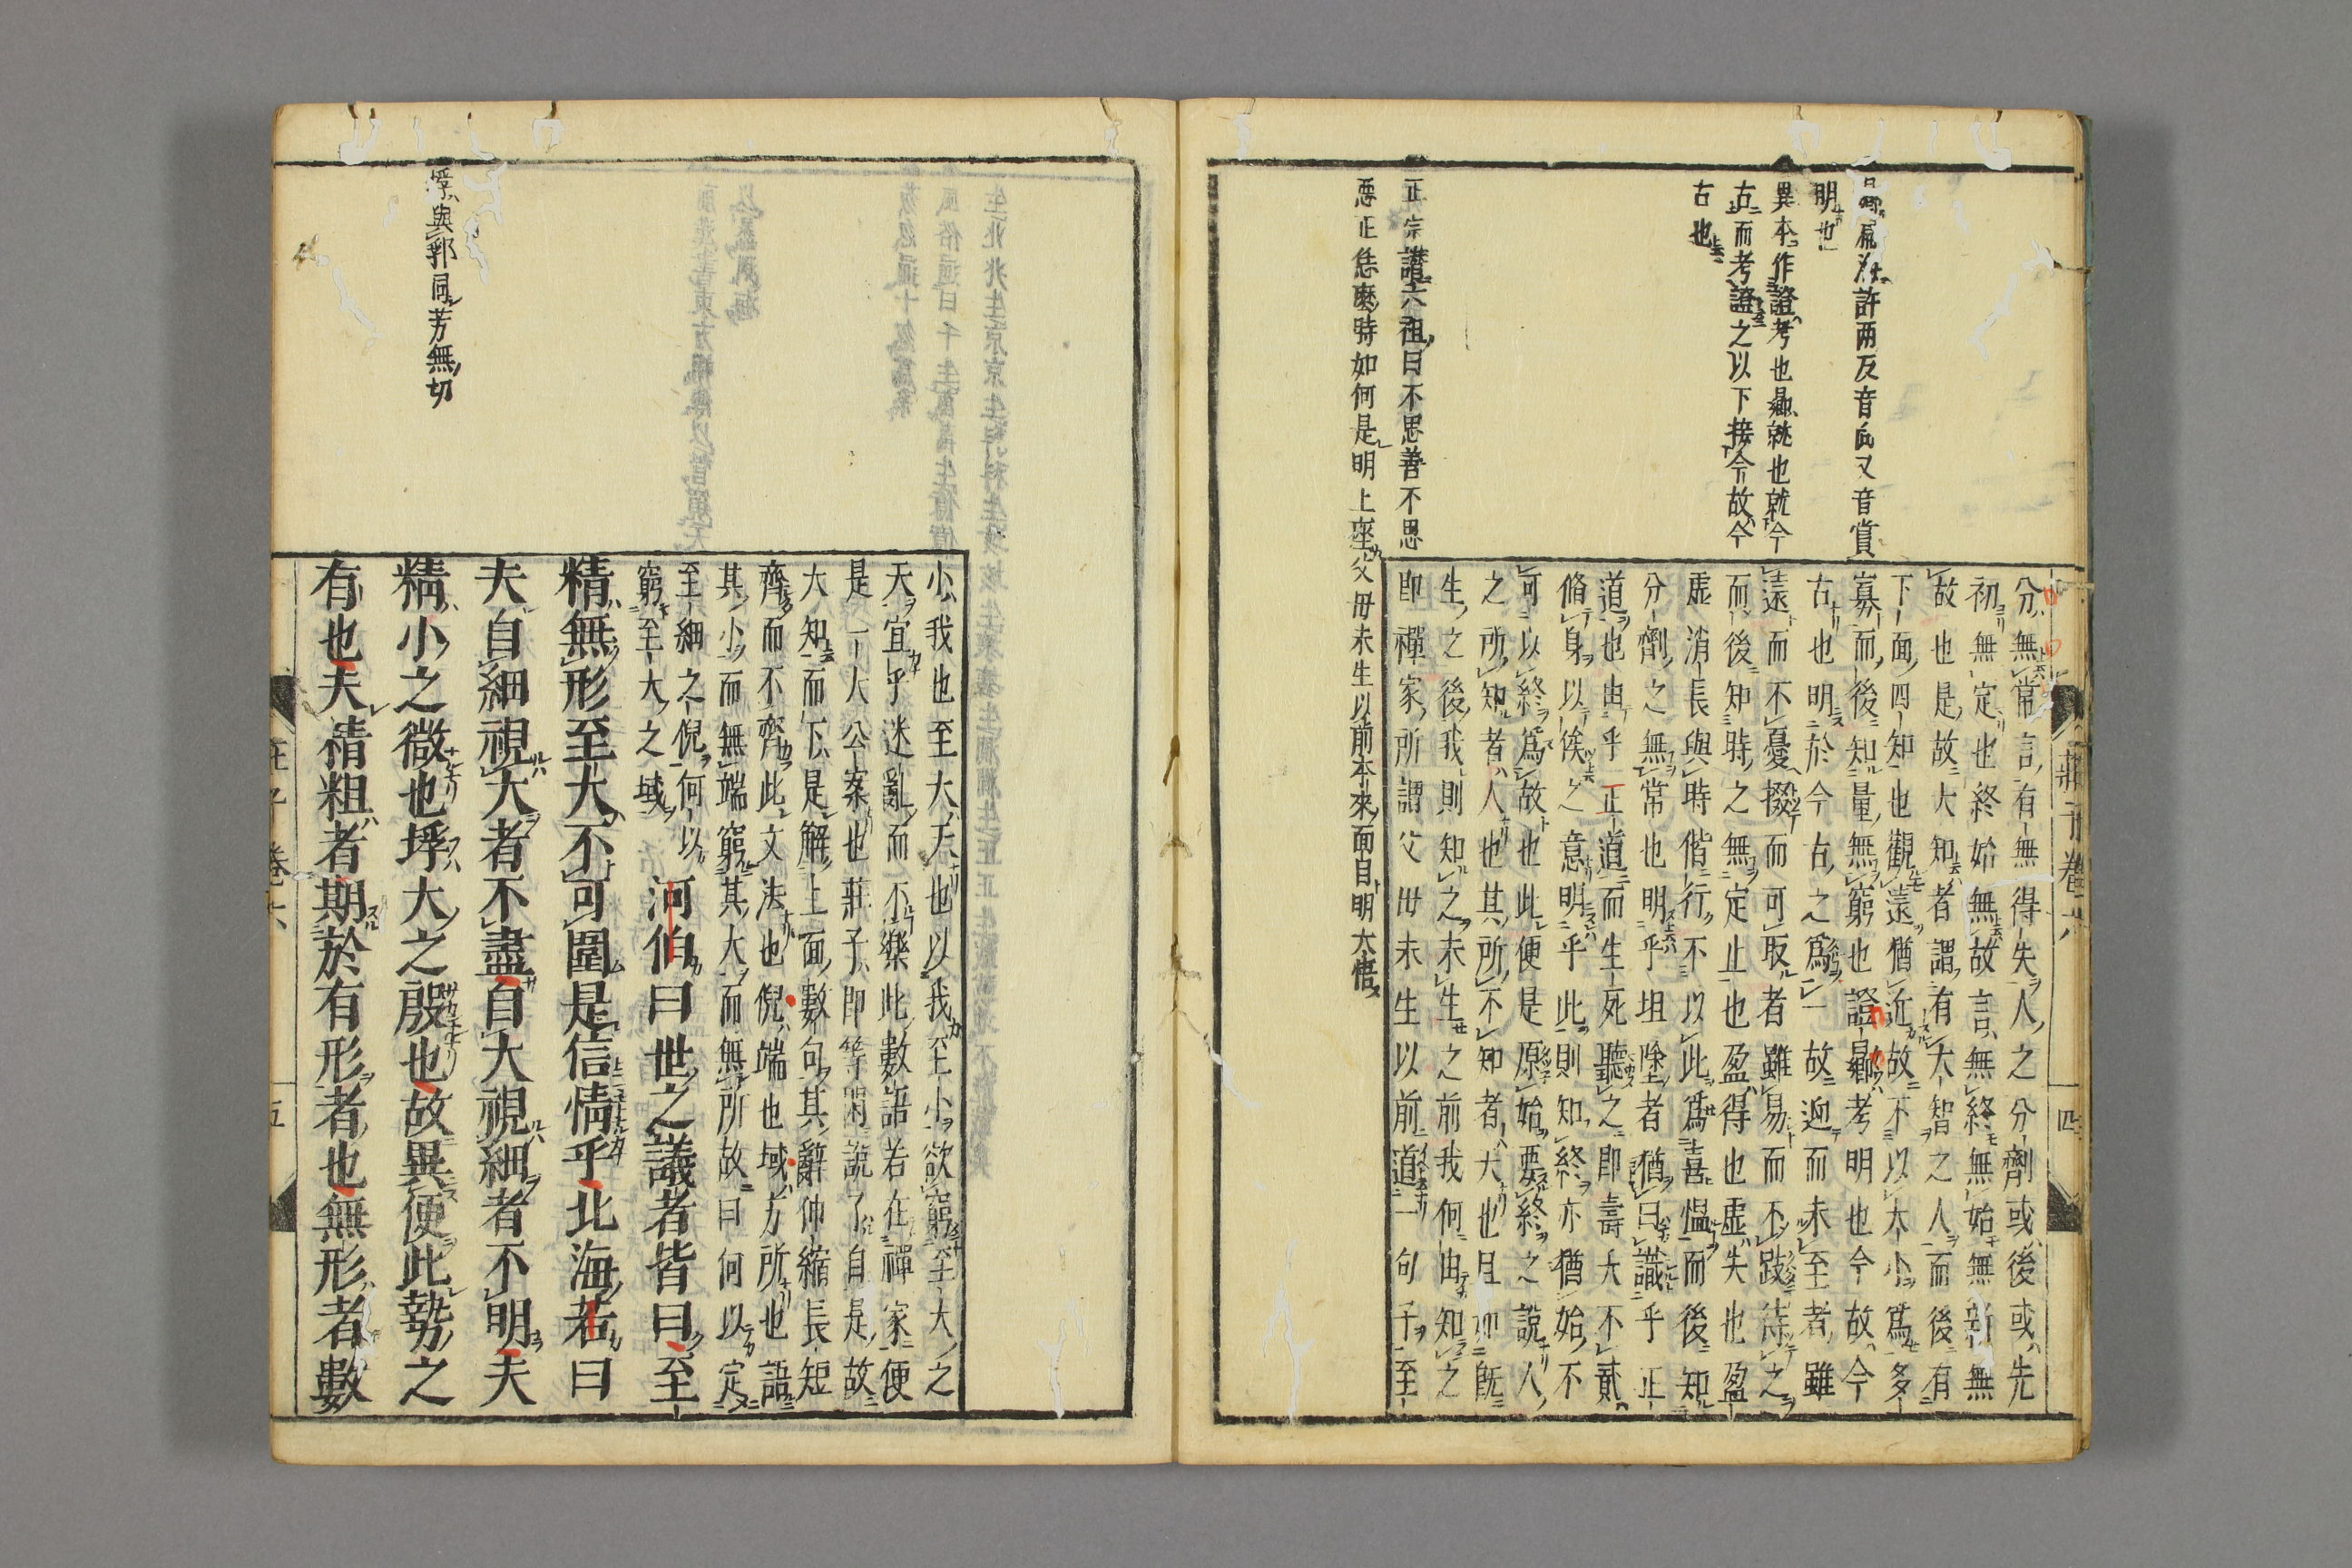 許兩反音向又音賞
明也
異本作證考也曏就也就今
古而考證之以下接令故今
古也
正宗讃六祖曰不思善不思
惡正恁麼時如何是明上座父毋未生以前本來面目明大悟
莊子卷六
四
分無常言有無得失人之分劑或後或先
初無定也終始無故言無終無始無新無
故也是故大知者謂有大智之人而後有
下面四知也觀遠猶近故不以大小為多
寡而後知量無窮也證曏考明也今故今
古也明於今古之為一故迎而未至者雖
遠而不憂掇而可取者雖易而不跂待之
而後知時之無定止也盈得也虛失也盈
虛消長與時偕行不以此為喜慍而後知
分劑之無常也明乎坦塗者猶曰識乎正
道也由乎正道而生死聽之即壽夭不貳
脩身以俟之意明乎此則知終亦猶始不
可以終為故也此便是原始要終之說人
之所知者人也其所不知者大也且如既
生之後我則知之未生之前我何由知之
即禪家所謂父毋未生以前道一句子至
小我也至大天也以我至小欲窮至大之
天宜乎迷亂而不樂此數語若在禪家便
是一大公案也莊子即等閑說了自是故
大知而下是解上面數句其辭伸縮長短
齊而不齊此文法也倪端也域方所也語
其小而無端窮其大而無所故曰何以定
至細之倪何以
窮至大之域
河伯曰世之議者皆曰至
精無形至大不可圍是信情乎北海若曰
夫自細視大者不盡自大視細者不明夫
精小之微也垺大之殷也故異便此勢之
有也夫精粗者期於有形者也無形者數
垺與郛同芳無切
莊子卷六
五